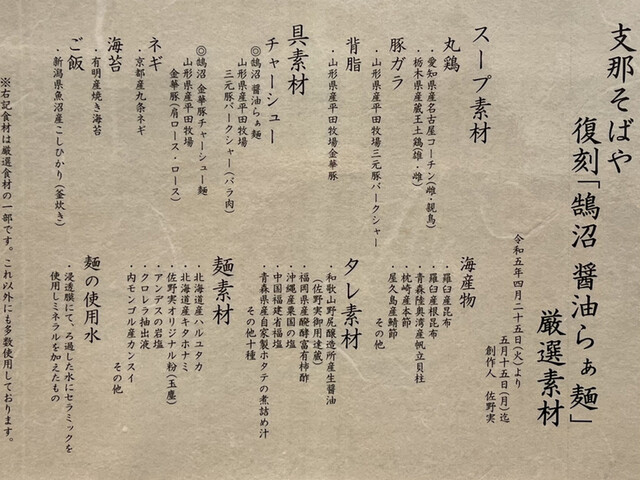 支那そばや
復刻「鵠沼 醤油らぁ麺」
厳選素材
令和五年四月二十五日(火)より
五月十五日(月)迄
創作人 佐野実
スープ素材
丸鶏
・愛知県産名古屋コーチン(雌・親鳥)
・栃木県産蔵王土鶏(雄・雌)
豚ガラ
・山形県産平田牧場三元豚バークシャー
背脂
・山形県産平田牧場金華豚
具素材
チャーシュー
◎鵠沼 醤油らぁ麺
山形県産平田牧場
三元豚バークシャー(バラ肉)
◎鵠沼 金華豚チャーシュー麺
山形県産平田牧場
金華豚(肩ロース・ロース)
ネギ
・京都産九条ネギ
海苔
・有明産焼き海苔
ご飯
・新潟県魚沼産こしひかり(釜炊き)
海産物
・羅臼産昆布
・羅臼産根昆布
・青森陸奥湾産帆立貝柱
・枕崎産本節
・屋久島産鯖節
その他
タレ素材
・和歌山野尻醸造所産生醤油
(佐野実御用達蔵)
・福岡県産醗酵富有柿酢
・沖縄産粟国の塩
・中国福建省福塩
・青森県産自家製ホタテの煮詰め汁
その他十種
麺素材
・北海道産ハルユタカ
・北海道産キタホナミ
・佐野実オリジナル粉(玉塵)
・アンデスの岩塩
・クロレラ抽出液
・内モンゴル産カンスイ
その他
麺の使用水
・浸透膜にて、ろ過した水にセラミックを
使用しミネラルを加えたもの
※右記食材は厳選食材の一部です。これ以外にも多数使用しております。